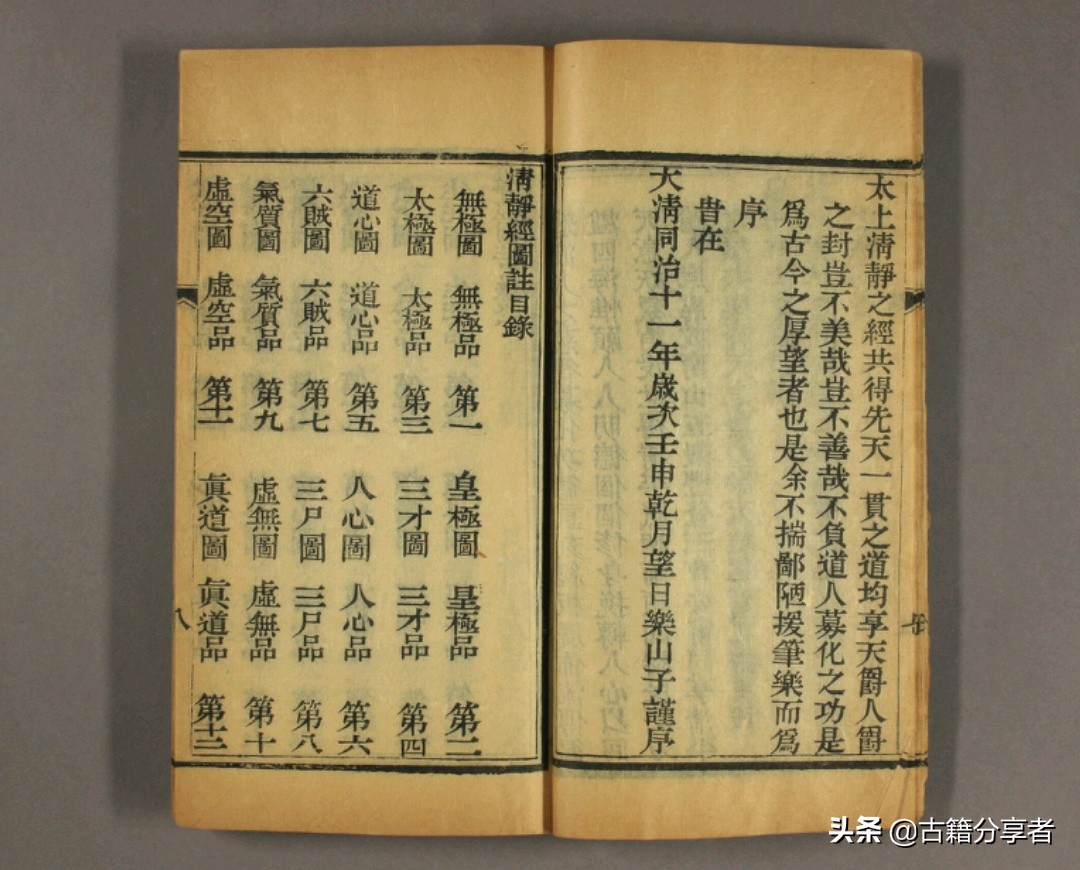 太上淸靜之經共得先天一貫之道均享天爵人爵
之封豈不美哉豈不善哉不負道人募化之功是
爲古今之厚望者也是余不揣鄙陋援筆樂而爲
序
昔在
大淸同治十一年歲次壬申乾月望日樂山子謹序
淸靜經圖註目錄
無極圖 無極品 第一 皇極圖 皇極品 第二
太極圖 太極品 第三 三才圖 三才品 第四
道心圖 道心品 第五 人心圖 人心品 第六
六賊圖 六賊品 第七 三尸圖 三尸品 第八
氣質圖 氣質品 第九 虛無圖 虛無品 第十
虛空圖 虛空品 第十一 眞道圖 眞道品 第十二
八
头条 @古籍分享者